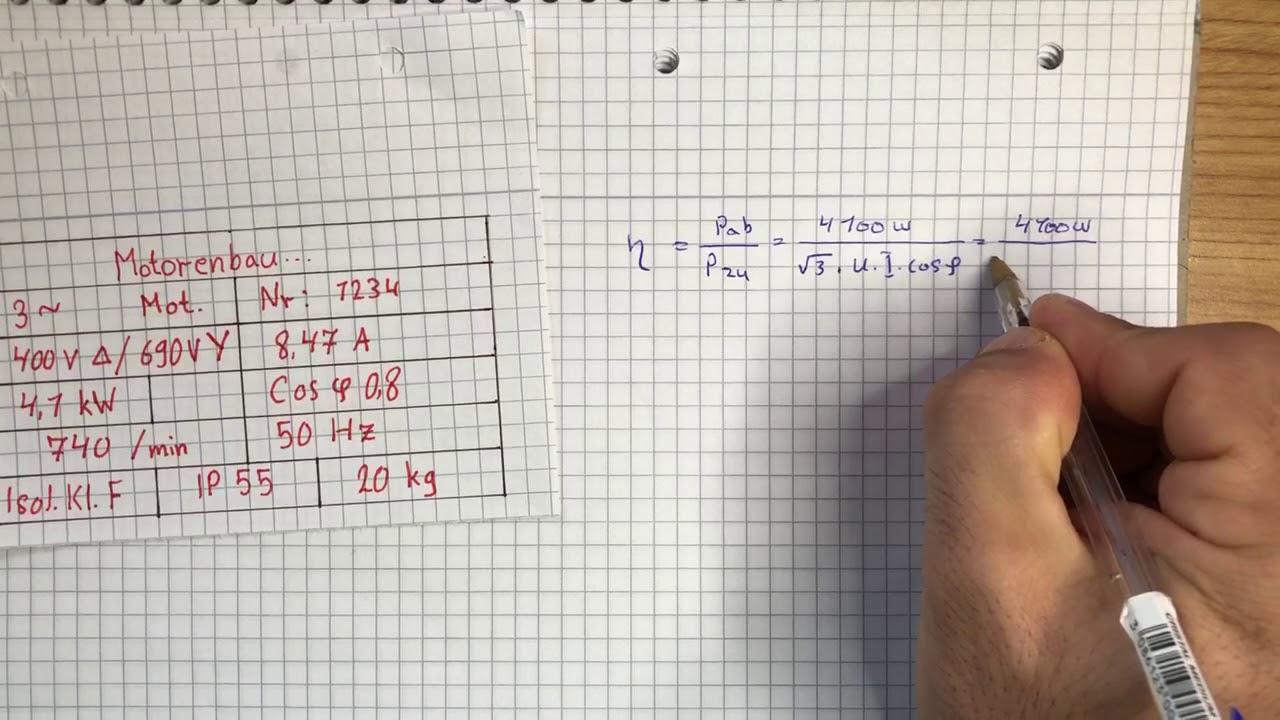 Motorenbau...
3 ~ Mot. Nr: 1234
400 V Δ/ 690V Y 8,47 A
4,7 kW Cos φ 0,8
740 /min 50 Hz
Isol. Kl. F IP 55 20 kg
η = Pab / Pzu = 4700W / √3 . U. I. cosφ = 4700W